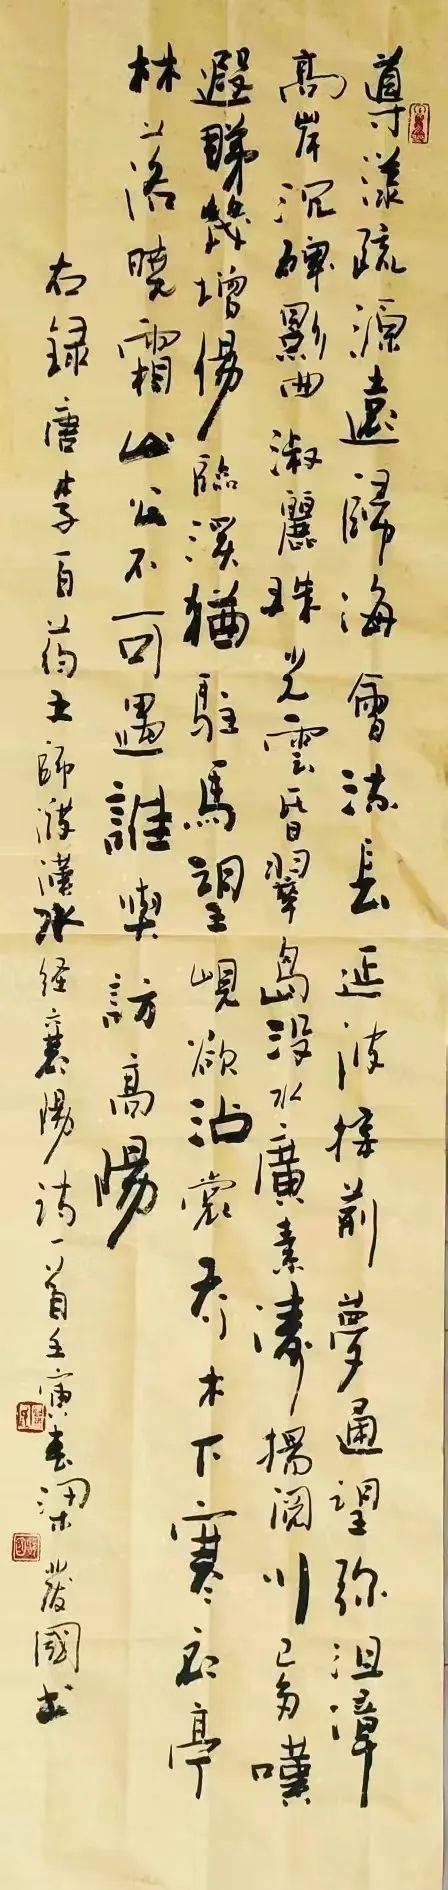 導漾疏源遠歸海會流長延波接荊夢通望弥沮漳
高岸沉碑影曲淑麗珠光雲昏翠島没水廣素濤揚閱川已多嘆
遐睇幾增傷臨溪猶駐馬望峴欲沾裳乔木下寒亭
林落曉霜山公不可遇誰與訪高陽
右録唐李百药王師渡漢水经襄陽詩一首壬寅春梁發國书